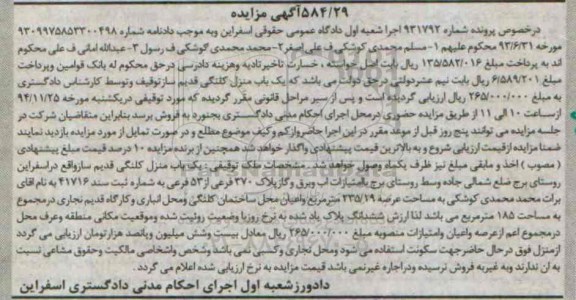 ۵۸۴/۲۹آگهی مزایده
درخصوص پرونده شماره ۹۳۱۷۹۲ اجرا شعبه اول دادگاه عمومی حقوقی اسفراین وبه موجب دادنامه شماره ۹۳۰۹۹۷۵۸۵۳۳۰۰۴۹۸
مورخه ۹۳/۶/۳۱ محکوم علیهم ۱-مسلم محمدی کوشکی ف علی اصغر ۲-محمد محمدی گوشکی ف رسول ۳-عبدالله امانی ف علی محکوم
اند به پرداخت مبلغ ۱۳۵/۵۸۲/۰۱۶ ریال بابت اصل خواسته ، خسارت تاخیر تادیه وهزینه دادرسی درحق محکوم له بانک قوامین وپرداخت
مبلغ ۶/۵۸۹/۲۰۱ ریال بابت نیم عشر دولتی درحق دولت می باشد که یک باب منزل کلنگی قدیم ساز توقیف وتوسط کارشناس دادگستری
به مبلغ ۲۶۵/۰۰۰/۰۰۰ ریال ارزیابی گردیده است و پس از سیر مراحل قانونی مقرر گردیده که مورد توقیفی دریکشنبه مورخه ۹۴/۱۱/۲۵
ازساعت ۱۰ الی ۱۱ از طریق مزایده حضوری درمحل اجرای احکام مدنی دادگستری بجنورد به فروش برسد بنابراین متقاضیان شرکت در
جلسه مزایده می توانند پنج روز قبل از موعد مقرر در این اجرا حاضر واز کم وکیف موضوع مطلع و در صورت تمایل از مورد مزایده بازدید نمایند
ضمنا مزایده ازقیمت ارزیابی شروع و به بالاترین قیمت پیشنهادی واگذار خواهد شد همچنین از برنده مزایده ۱۰ درصد قیمت پیشنهادی
( مصوب ) اخذ و مابقی مبلغ نیز ظرف یکماه وصول خواهد شد . مشخصات ملک توقیفی : یک باب منزل کلنگی قدیم ساز واقع دراسفراین
روستای برج ضلع شمالی جاده وسط روستای برج باامتیازات آب وبرق وگاز پلاک ۳۷۰ فرعی از ۵۳ فرعی به شماره ثبت سند ۴۱۷۱۶ به نام اقای
برات محمد محمدی کوشکی به مساحت عرصه ۲۳۵/۱۹ مترمربع واعیان محل ساختمان کلنگی ومحل انباری وکارگاه قدیم نجاری درمجموع
به مساحت ۱۸۵ مترمربع می باشد لذا ارزش ششدانگ پلاک یاد شده به نرخ روز با وضعیت رویت شده وموقعیت مکانی منطقه وعرف محل
درمجموع اعم ازعرصه واعیان وامتیازات منصوبه مبلغ ۲۶۵/۰۰۰/۰۰۰ ریال معادل بیست وشش میلیون وپانصد هزارتومان ارزیابی می گردد
ازمنزل فوق درحال حاضرجهت سکونت استفاده می شود ومحل تجاری وکسبی نمی باشد وشخص واشخاصی مالکیت وحقوق مشاعی نسبت
به ان ندارند وبه غیر به فروش نرسیده ودراجاره غیر نمی باشد قیمت مزایده به نرخ ارزیابی شده اعلام می گردد .
دادورز شعبه اول اجرای احکام مدنی دادگستری اسفراین